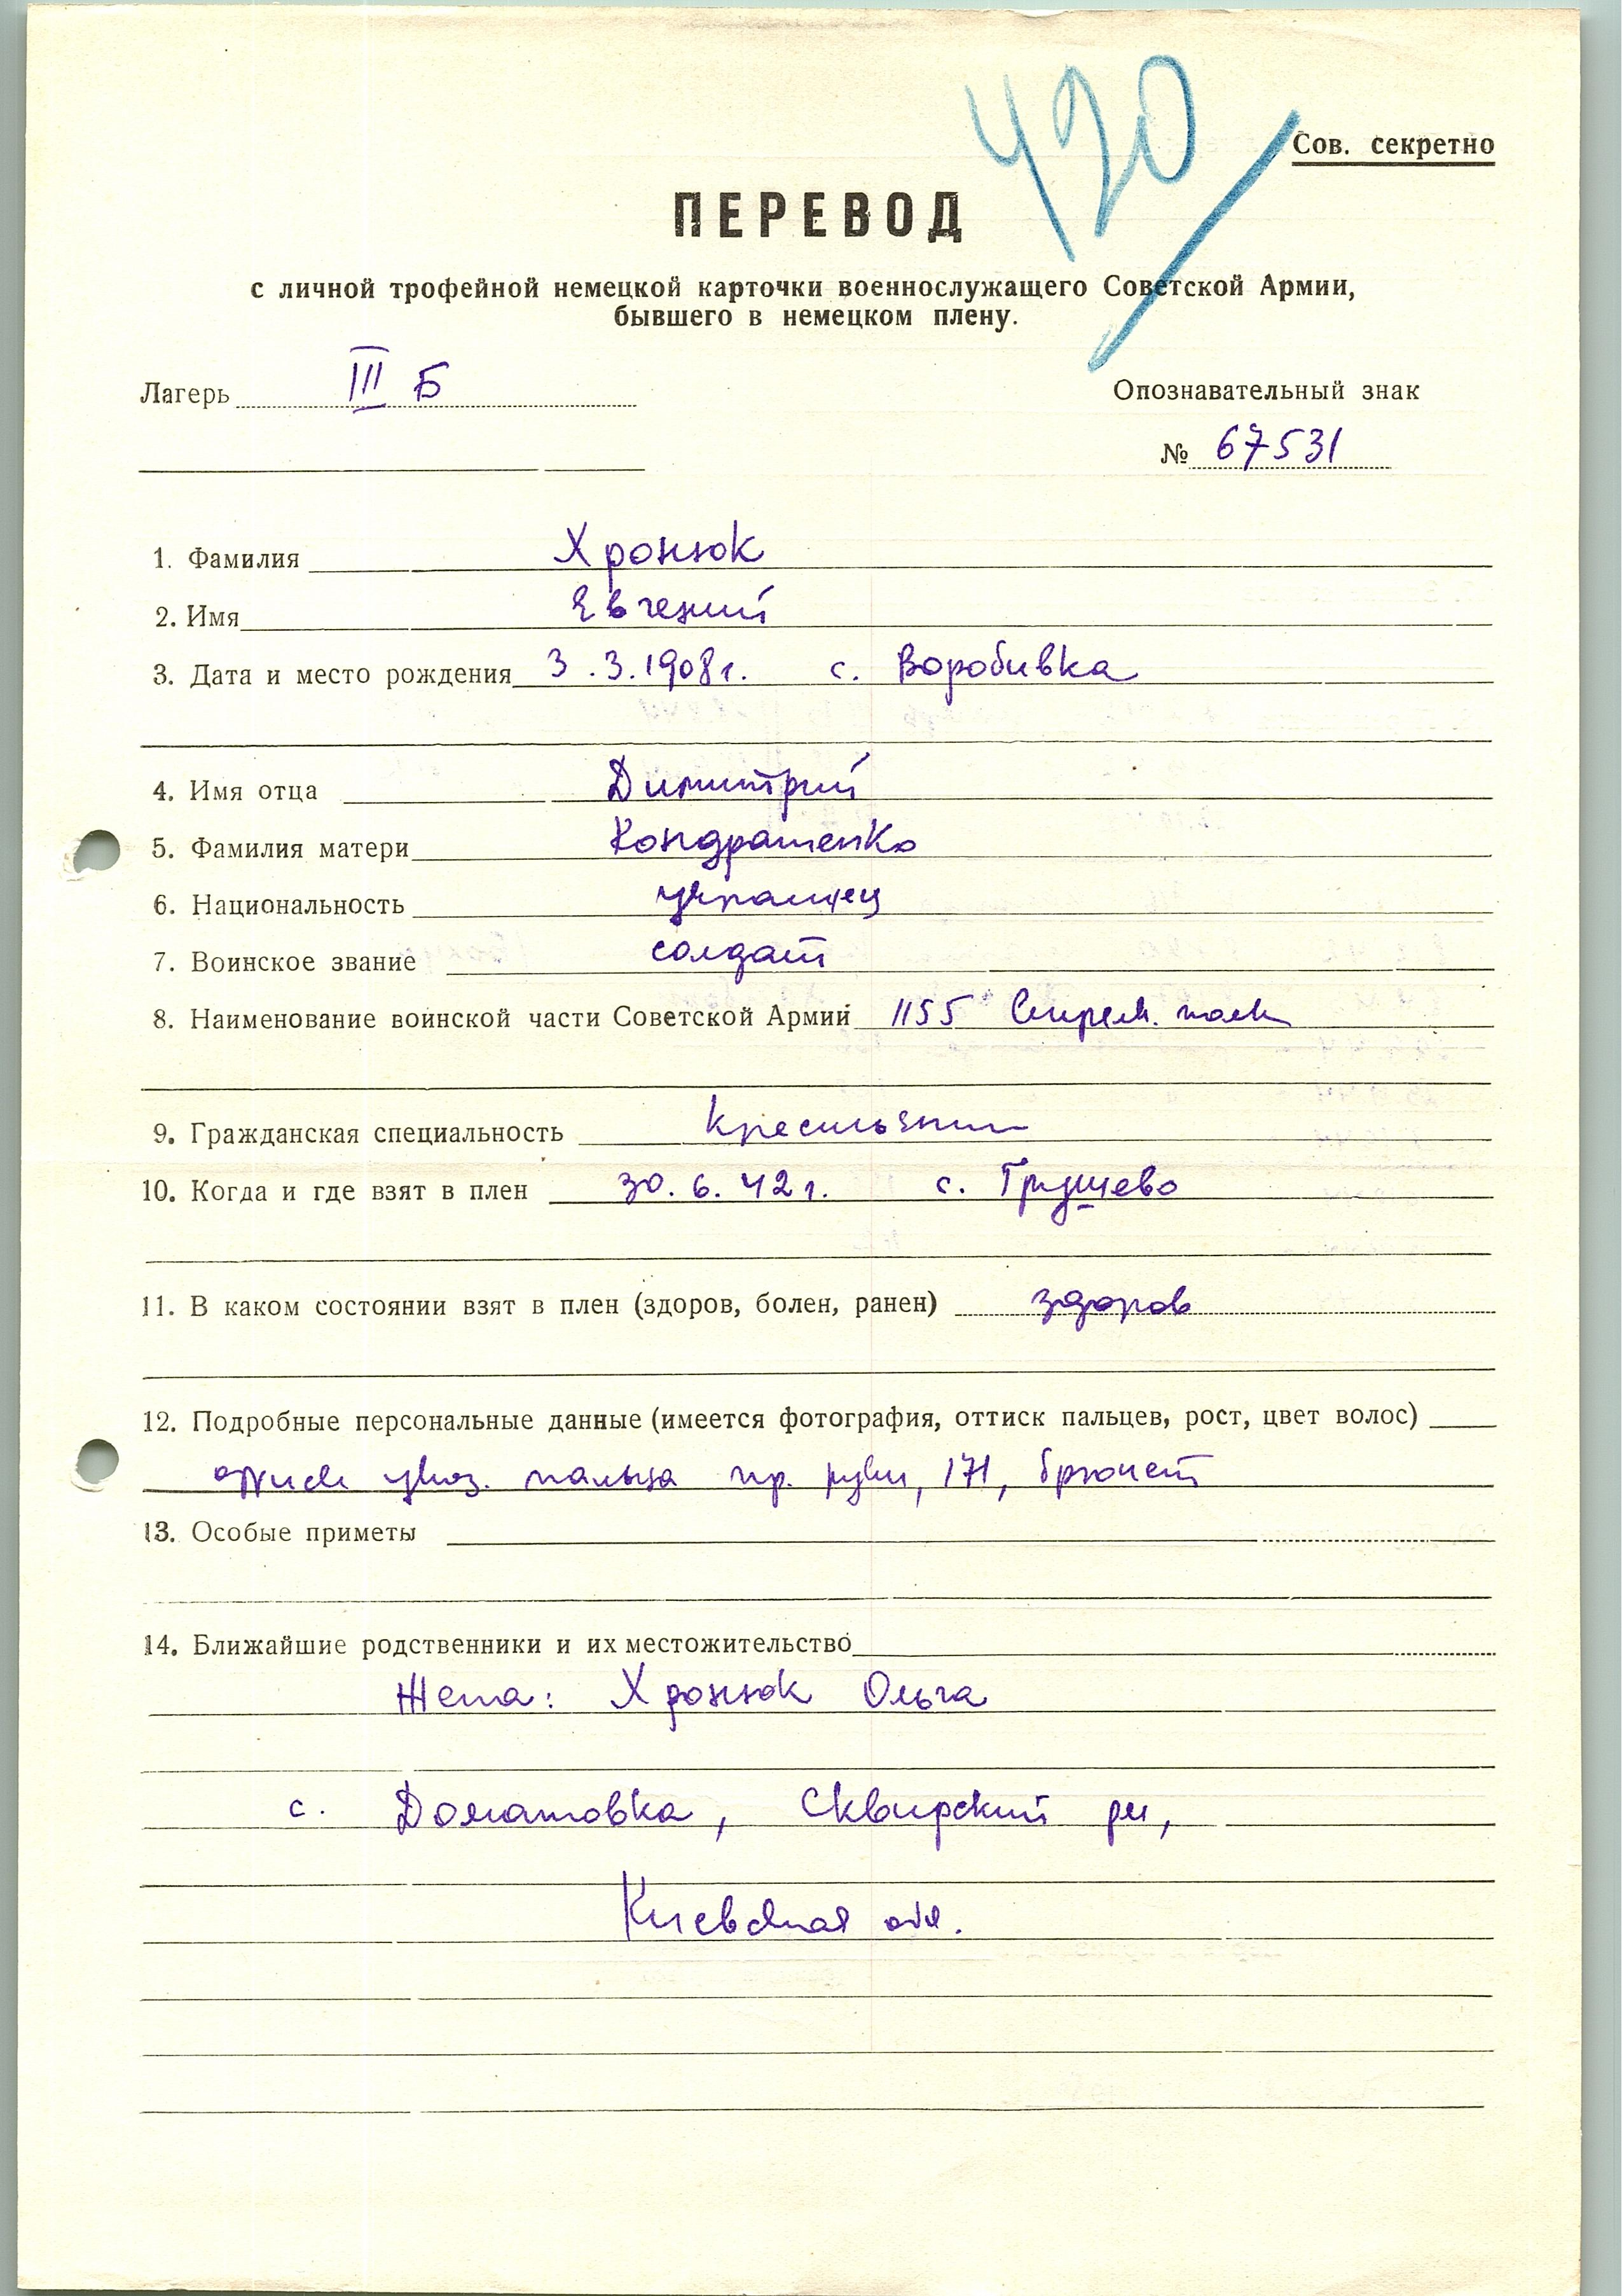 420
Сов. секретно
ПЕРЕВОД
с личной трофейной немецкой карточки военнослужащего Советской Армии,
бывшего в немецком плену.
Лагерь III Б
Опознавательный знак
№ 67531
1. Фамилия Хронюк
2. Имя Евгений
3. Дата и место рождения 3.3.1908г. с. Воробивка
4. Имя отца Димитрий
5. Фамилия матери Кондратенко
6. Национальность украинец
7. Воинское звание солдат
8. Наименование воинской части Советской Армии 1155 Стрелк. полк
9. Гражданская специальность
10. Когда и где взят в плен 30.6.42г. с. Грушево
11. В каком состоянии взят в плен (здоров, болен, ранен) здоров
12. Подробные персональные данные (имеется фотография, оттиск пальцев, рост, цвет волос)
оттиск указ. пальца пр. руки, 171, брюнет
13. Особые приметы
14. Ближайшие родственники и их местожительство
Жена: Хронюк Ольга
с. Домантовка, Сквирский рн,
Киевская обл.